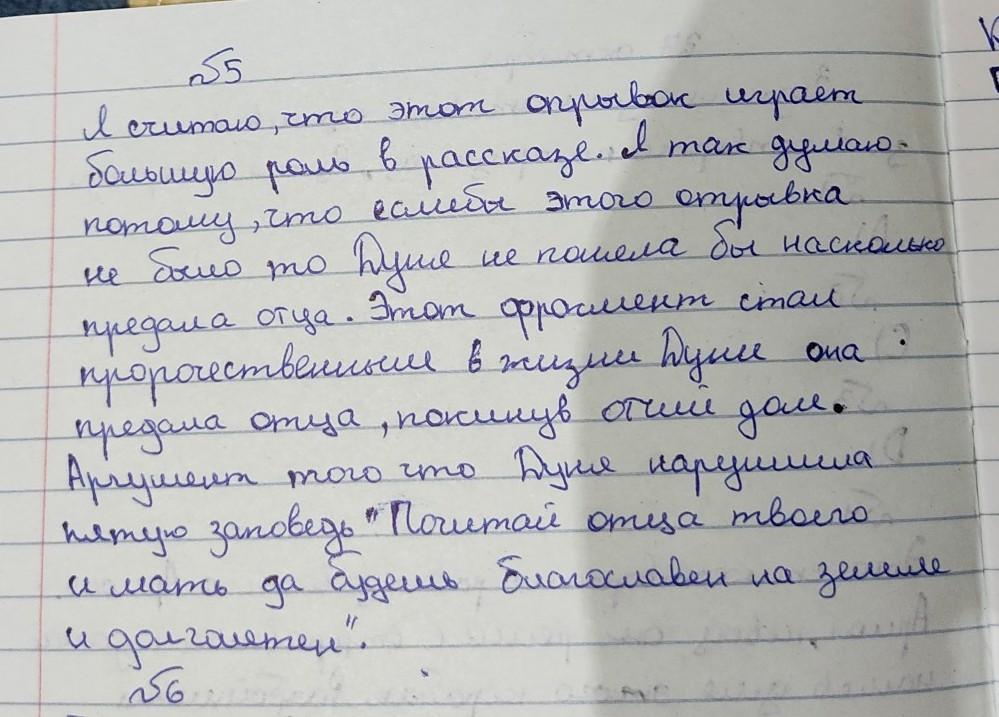 №5
Я считаю, что этот опрывок играет
большую роль в рассказе. Я так думаю
потому, что еслибы этого отрывка
не было то Дуня не понела бы насколько
предала отца. Этот фрогмент стал
пророчественным в жизни Дуни она
предала отца, покинув отчий дом.
Аргумент того что Дуня нарушила
пятую заповедь "Почитай отца твоего
и мать да будешь благославен на земле
и долголетен".
№6